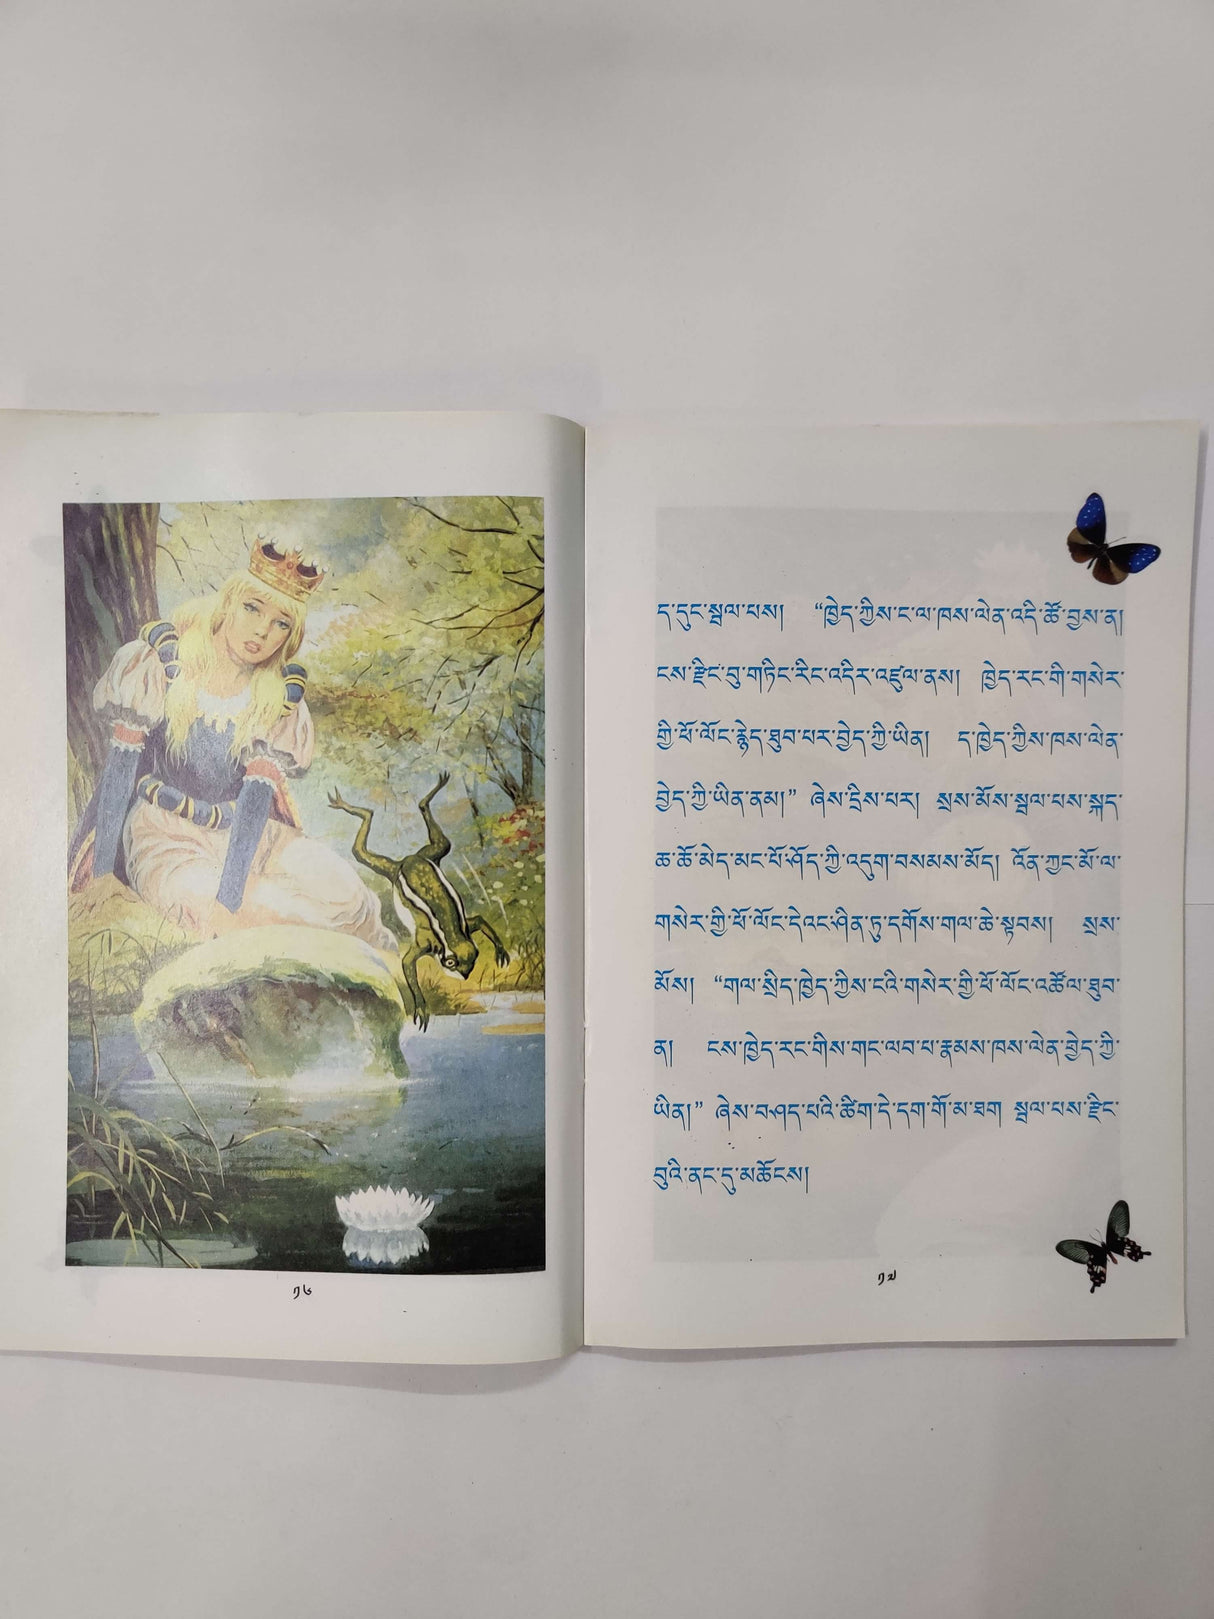 ༡༦
ད་དུང་སྦལ་པས།  “ཁྱེད་ཀྱིས་ང་ལ་ཁས་ལེན་འདི་ཚོ་བྱས་ན།
ངས་རྫིང་བུ་གཏིང་རིང་འདིར་འཛུལ་ནས།  ཁྱེད་རང་གི་གསེར་
གྱི་ཕོ་ལོང་རྙེད་ཐུབ་པར་བྱེད་ཀྱི་ཡིན།  ད་ཁྱེད་ཀྱིས་ཁས་ལེན་
བྱེད་ཀྱི་ཡིན་ནམ།” ཞེས་དྲིས་པར།  སྲས་མོས་སྦལ་པས་སྐད་
ཆ་ཆོ་མེད་མང་པོ་ཤོད་ཀྱི་འདུག་བསམས་མོད།  འོན་ཀྱང་མོ་ལ་
གསེར་གྱི་ཕོ་ལོང་དེའང་ཤིན་ཏུ་དགོས་གལ་ཆེ་སྟབས།  སྲས་
མོས།  “གལ་སྲིད་ཁྱེད་ཀྱིས་ངའི་གསེར་གྱི་ཕོ་ལོང་འཚོལ་ཐུབ་
ན།  ངས་ཁྱེད་རང་གིས་གང་ལབ་པ་རྣམས་ཁས་ལེན་བྱེད་ཀྱི་
ཡིན།” ཞེས་བཤད་པའི་ཚིག་དེ་དག་གོ་མ་ཐག  སྦལ་པས་རྫིང་
བུའི་ནང་དུ་མཆོངས།
༡༧